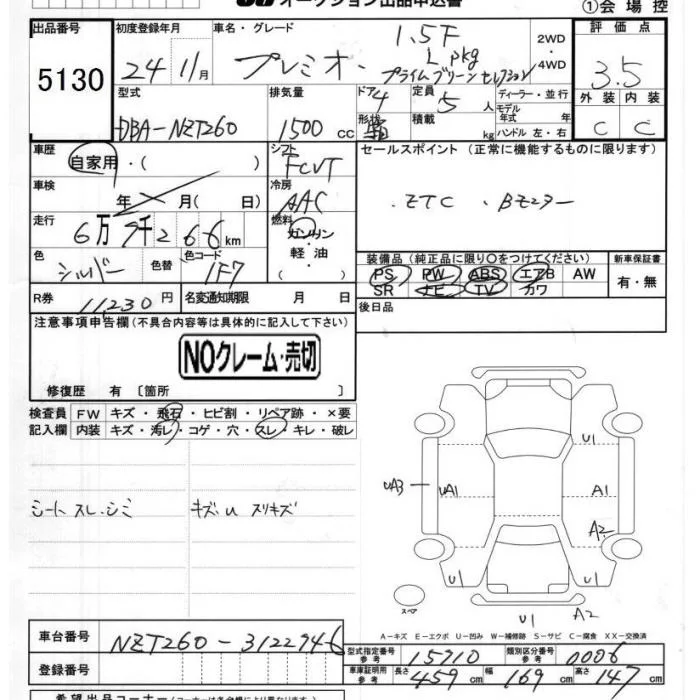 オークション出品申込書
①会場控
出品番号 初度登録年月 車名・グレード 評価点
5130 24 11月 プレミオ 1.5F Lpkg プライムグリーンセレクション 2WD・4WD 3.5
型式 排気量 ドア 4 定員 5人 ディーラー・並行 外装 内装
DBA-NZT260 1500cc 形状 積載 kg モデル年式 年 ハンドル 左・右 C C
車歴 自家用・( ) シフト FCVT セールスポイント (正常に機能するものに限ります)
車検 年 月( 日) 冷房 AAC ETC
走行 6万9千266km 燃料 ガソリン・軽油・( )
色 シルバー 色替 色コード 1F7
装備品(純正品に限り○をつけてください) 新車保証書
PS PW ABS エアB AW 有・無
SR ナビ TV カワ
R券 11,230円 名変通知期限 月 日 後日品
注意事項申告欄(不具合内容等は具体的に記入して下さい)
NOクレーム・売切
修復歴 有 〔箇所 〕
検査員 FW キズ・飛石・ヒビ割・リペア跡・×要
記入欄 内装 キズ・汚レ・コゲ・穴・スレ・キレ・破レ
シートスレ・シミ キズ、U スリキズ
U1
UA3 UA1 A1
A2
U1 U1
スペア U1 A2
A-キズ E-エクボ U-凹み W-補修跡 S-サビ C-腐食 XX-交換済
車台番号 NZT260-3122946
型式指定番号 参考 15910 類別区分番号 参考 0006
登録番号 車庫証明用 参考 長さ 459cm 幅 169cm 高さ 147cm
希望出品コーナー